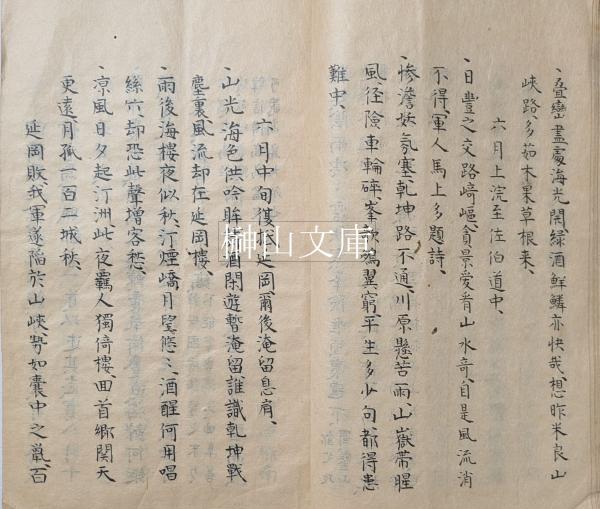 疊巒盡處海光開緑酒鮮鱗亦快哉、想昨米良山
峽路、多茹木果草根来、
六月上浣至佐伯道中、
日豊之交路崎嶇、貪景愛看山水奇、自是風流消
不得、軍人馬上多題詩、
惨澹妖氛塞乾坤路不通、川原懸苦雨、山嶽帯腥
風、径險車輪碎、峯欹鴻翼窮、平生多少句、都得患
難中、
六月中旬復低延岡、爾後淹留息肩、
山光海色供吟眸、酒閑遊暫淹留、誰識乾坤戰
塵裏、風流却在延岡樓、
雨後海樓夜似秋、汀煙嶠月望悠々、酒醒何用唱
絲穴、却恐此聲増客愁、
凉風日夕起汀洲、此夜羈人獨倚樓、回首郷關天
更遠、月孤一百二城秋、
延岡敗、我軍遂陥於山峡勢如嚢中之鼠、百
榊山文庫